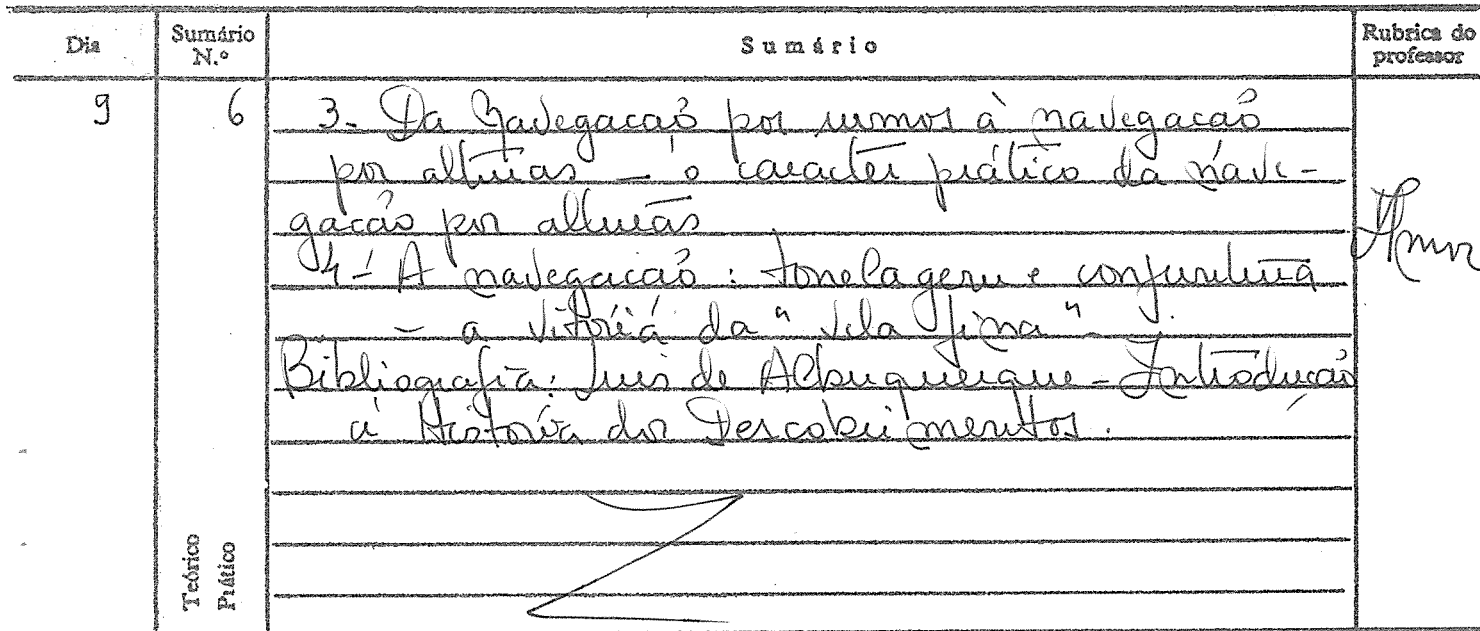 Dia
Sumário
N.º
Sumário
Rubrica do
professor
9
6
3- Da Navegação por rumos à navegação
por alturas – o caracter prático da nave-
gação por alturas
4- A navegação: tonelagem e conjuntura
– a vitória da "vela fina".
Bibliografia: Luís de Albuquerque – Introdução
à História dos Descobrimentos.
Teórico
Prático